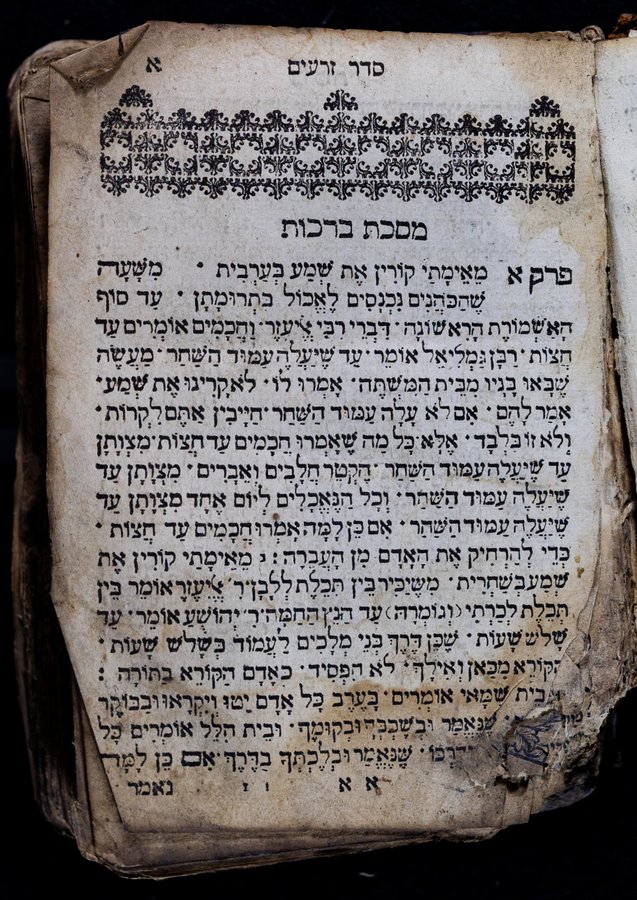 סדר זרעים
א
מסכת ברכות
פרק א מֵאֵימָתַי קוֹרִין אֶת שְׁמַע בְּעַרְבִית · מִשָּׁעָה
שֶׁהַכֹּהֲנִים נִכְנָסִים לֶאֱכוֹל בִּתְרוּמָתָן · עַד סוֹף
הָאַשְׁמוֹרֶת הָרִאשׁוֹנָה · דִּבְרֵי רַבִּי אֱלִיעֶזֶר · וַחֲכָמִים אוֹמְרִים עַד
חֲצוֹת · רַבָּן גַּמְלִיאֵל אוֹמֵר · עַד שֶׁיַּעֲלֶה עַמּוּד הַשַּׁחַר · מַעֲשֶׂה
שֶׁבָּאוּ בָנָיו מִבֵּית הַמִּשְׁתֶּה · אָמְרוּ לוֹ · לֹא קָרִינוּ אֶת שְׁמַע ·
אָמַר לָהֶם · אִם לֹא עָלָה עַמּוּד הַשַּׁחַר · חַיָּיבִין אַתֶּם לִקְרוֹת ·
וְלֹא זוֹ בִּלְבַד · אֶלָּא כָּל מַה שֶּׁאָמְרוּ חֲכָמִים עַד חֲצוֹת · מִצְוָתָן
עַד שֶׁיַּעֲלֶה עַמּוּד הַשַּׁחַר · הֶקְטֵר חֲלָבִים וְאֵבָרִים · מִצְוָתָן עַד
שֶׁיַּעֲלֶה עַמּוּד הַשַּׁחַר · וְכָל הַנֶּאֱכָלִים לְיוֹם אֶחָד מִצְוָתָן עַד
שֶׁיַּעֲלֶה עַמּוּד הַשַּׁחַר · אִם כֵּן לָמָּה אָמְרוּ חֲכָמִים עַד חֲצוֹת ·
כְּדֵי לְהַרְחִיק אֶת הָאָדָם מִן הָעֲבֵרָה : ג מֵאֵימָתַי קוֹרִין אֶת
שְׁמַע בְּשַׁחֲרִית · מִשֶּׁיַּכִּיר בֵּין תְּכֵלֶת לְלָבָן · ר׳ אֱלִיעֶזֶר אוֹמֵר בֵּין
תְּכֵלֶת לְכַרְתִי (וְגוֹמְרָהּ) עַד הָנֵץ הַחַמָּה · ר׳ יְהוֹשֻׁעַ אוֹמֵר · עַד
שָׁלֹשׁ שָׁעוֹת · שֶׁכֵּן דֶּרֶךְ בְּנֵי מְלָכִים לַעֲמוֹד בְּשָׁלֹשׁ שָׁעוֹת ·
הַקּוֹרֵא מִכָּאן וְאֵילָךְ · לֹא הִפְסִיד · כְּאָדָם הַקּוֹרֵא בַתּוֹרָה :
בֵּית שַׁמַּאי אוֹמְרִים · בָּעֶרֶב כָּל אָדָם יַטּוּ וְיִקְרְאוּ וּבַבּוֹקֶר
שֶׁנֶּאֱמַר וּבְשָׁכְבְּךָ וּבְקוּמֶךָ · וּבֵית הִלֵּל אוֹמְרִים כָּל
כְדַרְכּוֹ · שֶׁנֶּאֱמַר וּבְלֶכְתְּךָ בַדֶּרֶךְ · אִם כֵּן לָמָּה
א א ו ז נאמר